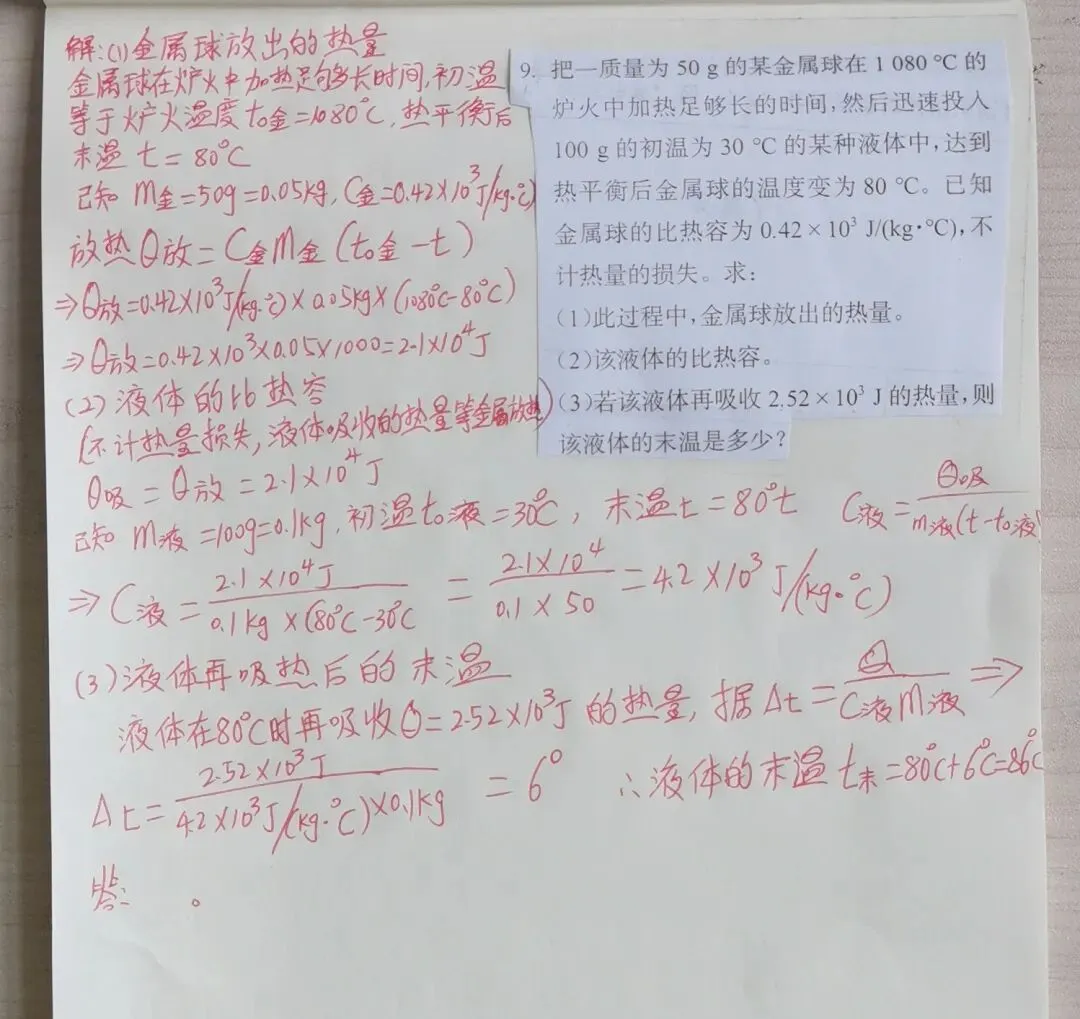 解:(1)金属球放出的热量
金属球在炉火中加热足够长时间,初温
等于炉火温度t₀金=1080°C,热平衡后
末温 t=80°C
已知 m金=50g=0.05kg,C金=0.42×10³J/(kg·°C)
放热Q放=C金m金(t₀金-t)
⇒Q放=0.42×10³J/(kg·°C)×0.05kg×(1080°C-80°C)
⇒Q放=0.42×10³×0.05×1000=2.1×10⁴J
(2)液体的比热容
(不计热量损失,液体吸收的热量等金属放热)
Q吸=Q放=2.1×10⁴J
已知 m液=100g=0.1kg,初温t₀液=30°C, 末温t=80°t C液=Q吸/m液(t-t₀液)
⇒C液=2.1×10⁴J/0.1kg×(80°C-30°C=2.1×10⁴/0.1×50=4.2×10³J/(kg·°C)
(3)液体再吸热后的末温
液体在80°C时再吸收Q=2.52×10³J的热量,据Δt=Q/C液m液⇒
Δt=2.52×10³J/4.2×10³J/(kg·°C)×0.1kg=6° ∴液体的末温t末=80°C+6°C=86°C
答: 。
9. 把一质量为 50 g 的某金属球在 1 080 ℃ 的
炉火中加热足够长的时间,然后迅速投入
100 g 的初温为 30 ℃ 的某种液体中,达到
热平衡后金属球的温度变为 80 ℃。已知
金属球的比热容为 0.42×10³ J/(kg·℃),不
计热量的损失。求:
(1)此过程中,金属球放出的热量。
(2)该液体的比热容。
(3)若该液体再吸收 2.52×10³ J 的热量,则
该液体的末温是多少?